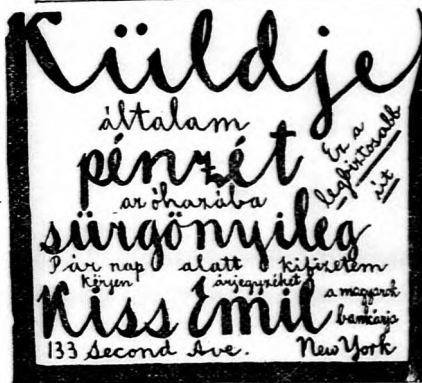 Küldje
általam
pénzét
az óhazába
sürgönyileg
Ez a
legbiztosabb
út
Pár nap alatt kifizetem
Kérjen árjegyzéket
Kiss Emil
a magyarok
bankárja
133 Second Ave. New York